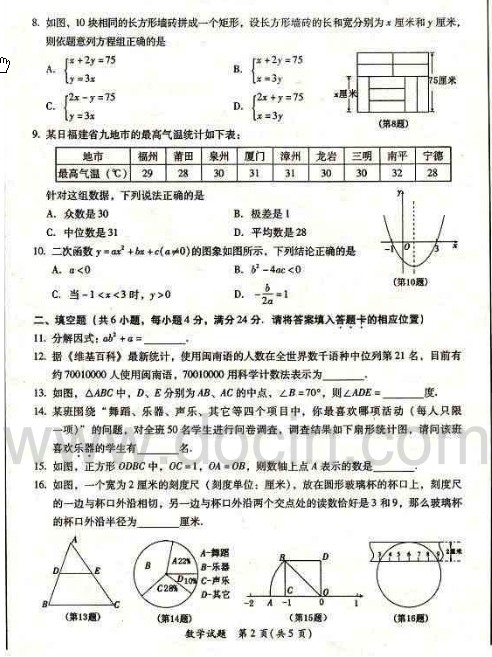 8. 如图，10块相同的长方形墙砖拼成一个矩形，设长方形墙砖的长和宽分别为x厘米和y厘米，
则依题意列方程组正确的是
A. {x+2y=75 y=3x B. {x+2y=75 x=3y
C. {2x-y=75 y=3x D. {2x+y=75 x=3y
x厘米 75厘米
(第8题)
9. 某日福建省九地市的最高气温统计如下表：
地市 福州 莆田 泉州 厦门 漳州 龙岩 三明 南平 宁德
最高气温（℃） 29 28 30 31 31 30 30 32 28
针对这组数据，下列说法正确的是
A. 众数是30 B. 极差是1
C. 中位数是31 D. 平均数是28
y
-1 O 3 x
(第10题)
10. 二次函数y=ax²+bx+c(a≠0)的图象如图所示，下列结论正确的是
A. a<0 B. b²-4ac<0
C. 当-1<x<3时，y>0 D. -b/2a=1
二、填空题（共6小题，每小题4分，满分24分．请将答案填入答题卡的相应位置）
11. 分解因式：ab²+a=______．
12. 据《维基百科》最新统计，使用闽南语的人数在全世界数千语种中位列第21名，目前有
约70010000人使用闽南语，70010000用科学计数法表示为______．
13. 如图，△ABC中，D、E分别为AB、AC的中点，∠B=70°，则∠ADE=______度．
14. 某班围绕“舞蹈、乐器、声乐、其它等四个项目中，你最喜欢哪项活动（每人只限
一项）”的问题，对全班50名学生进行问卷调查，调查结果如下扇形统计图，请问该班
喜欢乐器的学生有______名．
15. 如图，正方形ODBC中，OC=1，OA=OB，则数轴上点A表示的数是______．
16. 如图，一个宽为2厘米的刻度尺（刻度单位：厘米），放在圆形玻璃杯的杯口上，刻度尺
的一边与杯口外沿相切，另一边与杯口外沿两个交点处的读数恰好是3和9，那么玻璃杯
的杯口外沿半径为______厘米．
www.docin.com
A D E B C
(第13题)
B A22% D10% C28%
A-舞蹈
B-乐器
C-声乐
D-其它
(第14题)
B D
A C O
-2 -1 0 1
(第15题)
3 4 5 6 7 8 9 2厘米
(第16题)
数学试题 第2页(共5页)